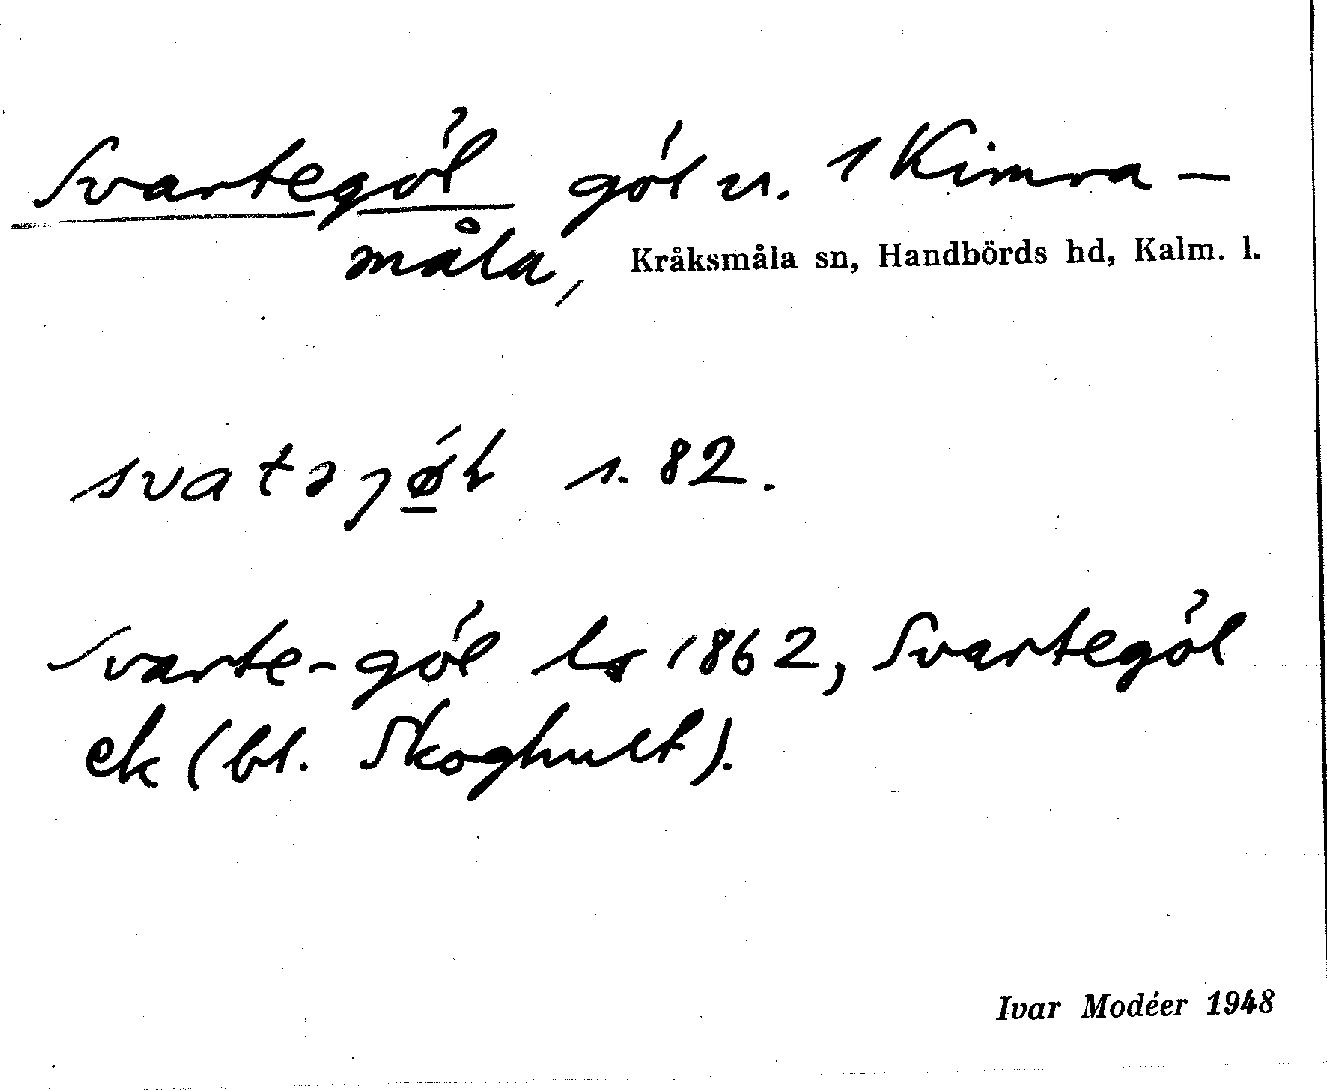 Svartegöl göl u. 1 Kimra-
måla, Kråksmåla sn, Handbörds hd, Kalm. l.
s. 82.
Svarte-göl ls 1862, Svartegöl
ek (bl. Skoghult).
Ivar Modéer 1948